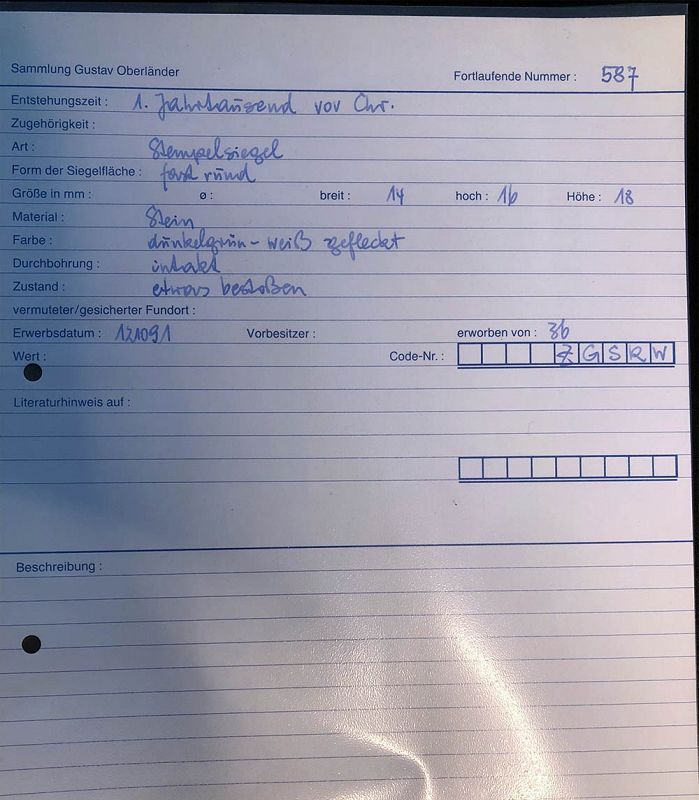 Sammlung Gustav Oberländer
Fortlaufende Nummer : 587
Entstehungszeit : 1. Jahrhausend vor Chr.
Zugehörigkeit :
Art : Stempelsiegel
Form der Siegelfläche : fast rund
Größe in mm : ø : breit : 14 hoch : 16 Höhe : 18
Material : Stein
Farbe : dunkelgrün - weiß gefleckt
Durchbohrung : intakt
Zustand : etwas bestoßen
vermuteter/gesicherter Fundort :
Erwerbsdatum : 121091 Vorbesitzer : erworben von : 36
Wert : Code-Nr. : Z G S R W
Literaturhinweis auf :
Beschreibung :